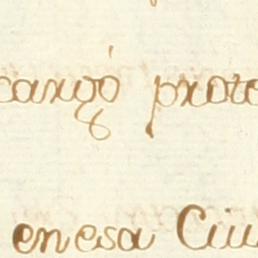 cargò prote
en esa Ciu